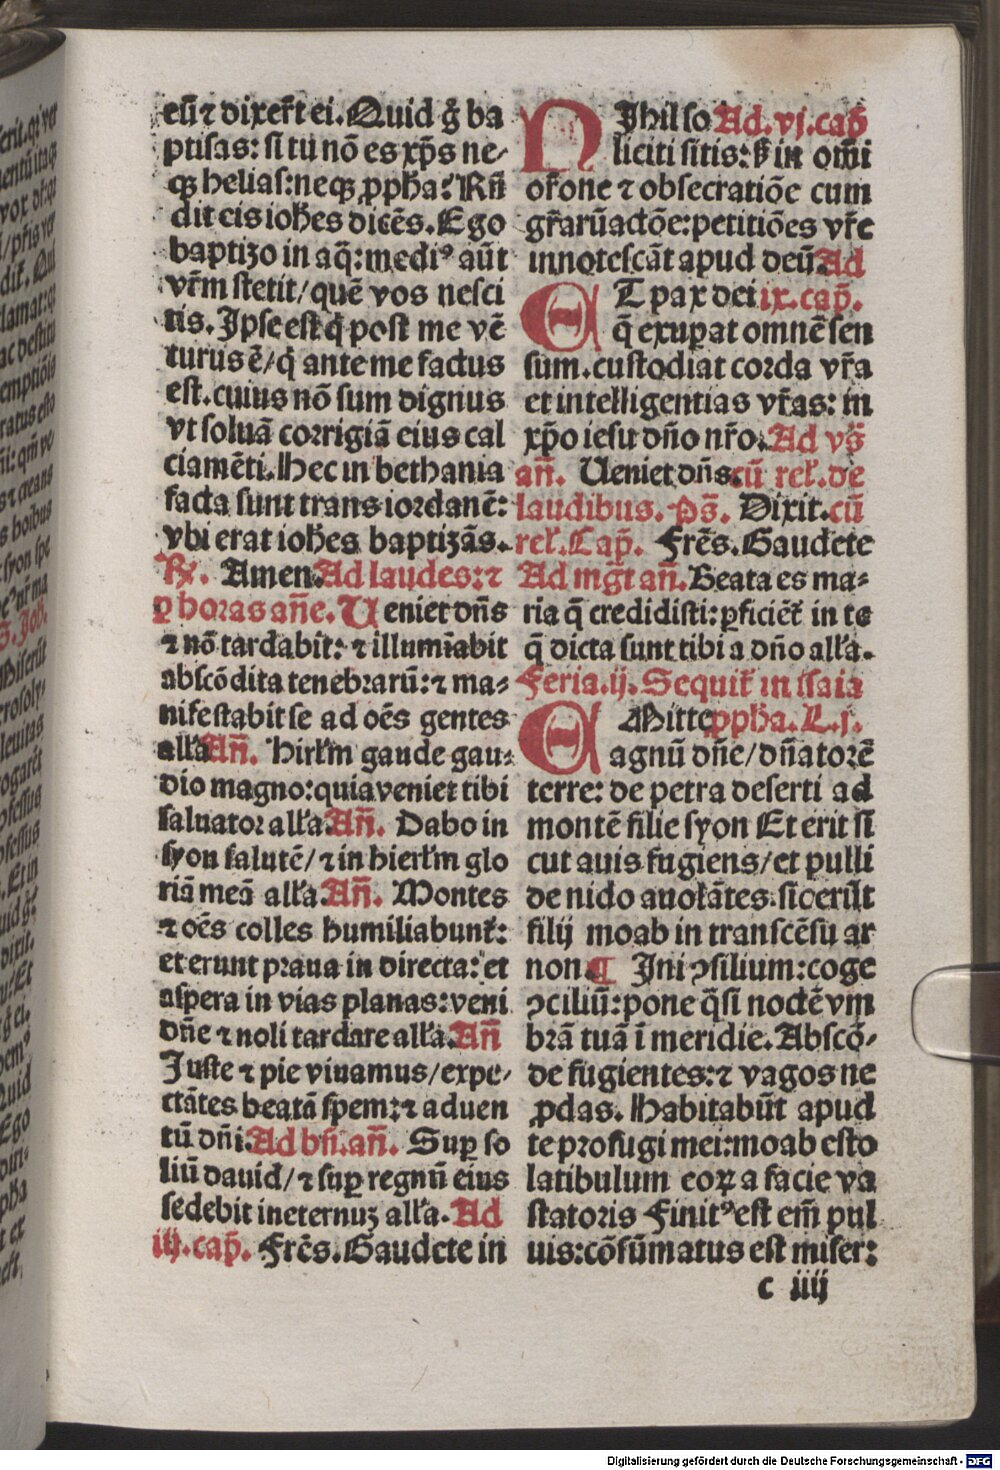 eū ⁊ dixer̄t ei. Quid g̊ ba
ptisas: si tu nō es xp̄s ne-
qꝫ helias: neqꝫ ꝓpħa? Rn̄
dit eis ioħes dicēs. Ego
baptizo in aq̄: mediꝰ aūt
vr̄m stetit/ quē vos nesci
tis. Ipse est q̄ post me vē
turus ē/ q̄ ante me factus
est. cuius nō sum dignus
vt soluā corrigiā eius cal
ciamēti. Hec in bethania
facta sunt trans iordanē:
vbi erat ioħes baptizās.
℟. Amen. Ad laudes: ⁊
ꝑ horas añe. Ueniet dn̄s
⁊ nō tardabit: ⁊ illumīabit
abscōdita tenebrarū: ⁊ ma-
nifestabit se ad oēs gentes
all'a. Añ. Hirl'm gaude gau-
dio magno: quia veniet tibi
saluator all'a. Añ. Dabo in
syon salutē/ ⁊ in hierl'm glo
riā meā all'a. Añ. Montes
⁊ oēs colles humiliabunt̄:
et erunt praua in directa: et
aspera in vias planas: veni
dn̄e ⁊ noli tardare all'a. Añ
Iuste ⁊ pie viuamus/ expe-
ctātes beatā spem: ⁊ aduen
tū dn̄i. Ad bn̄. añ. Suꝑ so
liū dauid/ ⁊ suꝑ regnū eius
sedebit in eternuꝫ all'a. Ad
iij. cap̄. Fr̄es. Gaudete in
NIhil so Ad. vj. cap̄
liciti sitis: sꝫ in om̄i
or̄one ⁊ obsecratiōe cum
gr̄arū actōe: petitiōes vr̄e
innotescāt apud deū. Ad
ET pax dei ix. cap̄.
q̄ exuꝑat omnē sen
sum. custodiat corda vr̄a
et intelligentias vr̄as: in
xp̄o iesu dn̄o nr̄o. Ad vs̄
añ. Ueniet dn̄s. cū rel'. de
laudibus. Ps̄. Dixit. cū
rel'. Cap̄. Fr̄es. Gaudete
Ad mgt̄ añ. Beata es ma-
ria q̄ credidisti: ꝑficiēt̄ in te
q̄ dicta sunt tibi a dn̄o all'a.
Feria. ij. Sequit̄ in isaia
EMitte ꝓpħa. L. j.
agnū dn̄e/ dn̄atorē
terre: de petra deserti ad
montē filie syon Et erit si
cut auis fugiens/ et pulli
de nido auolātes. sic erūt
filij moab in transcēsu ar
non. ¶ Ini ꝯsilium: coge
ꝯciliū: pone q̄si noctē vm
brā tuā ī meridie. Abscō-
de fugientes: ⁊ vagos ne
ꝓdas. Habitabūt apud
te profugi mei: moab esto
latibulum eoꝝ a facie va
statoris Finitꝰ est em̄ pul
uis: cōsūmatus est miser:
c iiij
Digitalisierung gefördert durch die Deutsche Forschungsgemeinschaft - DFG